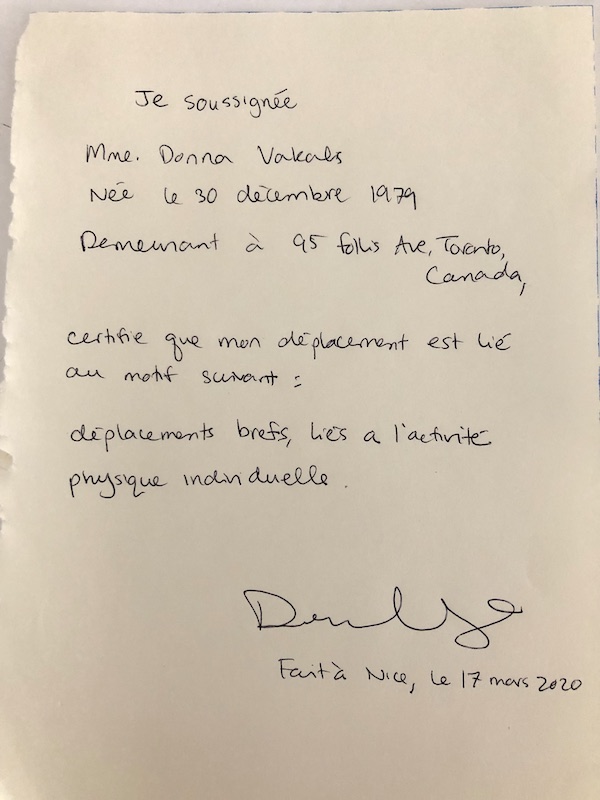 Je soussignée
Mme. Donna Vakalis
Née le 30 décembre 1979
Demeurant à 95 follis Ave, Toronto,
Canada,
certifie que mon déplacement est lié
au motif suivant :
déplacements brefs, liés a l'activité
physique individuelle.
Fait à Nice, le 17 mars 2020